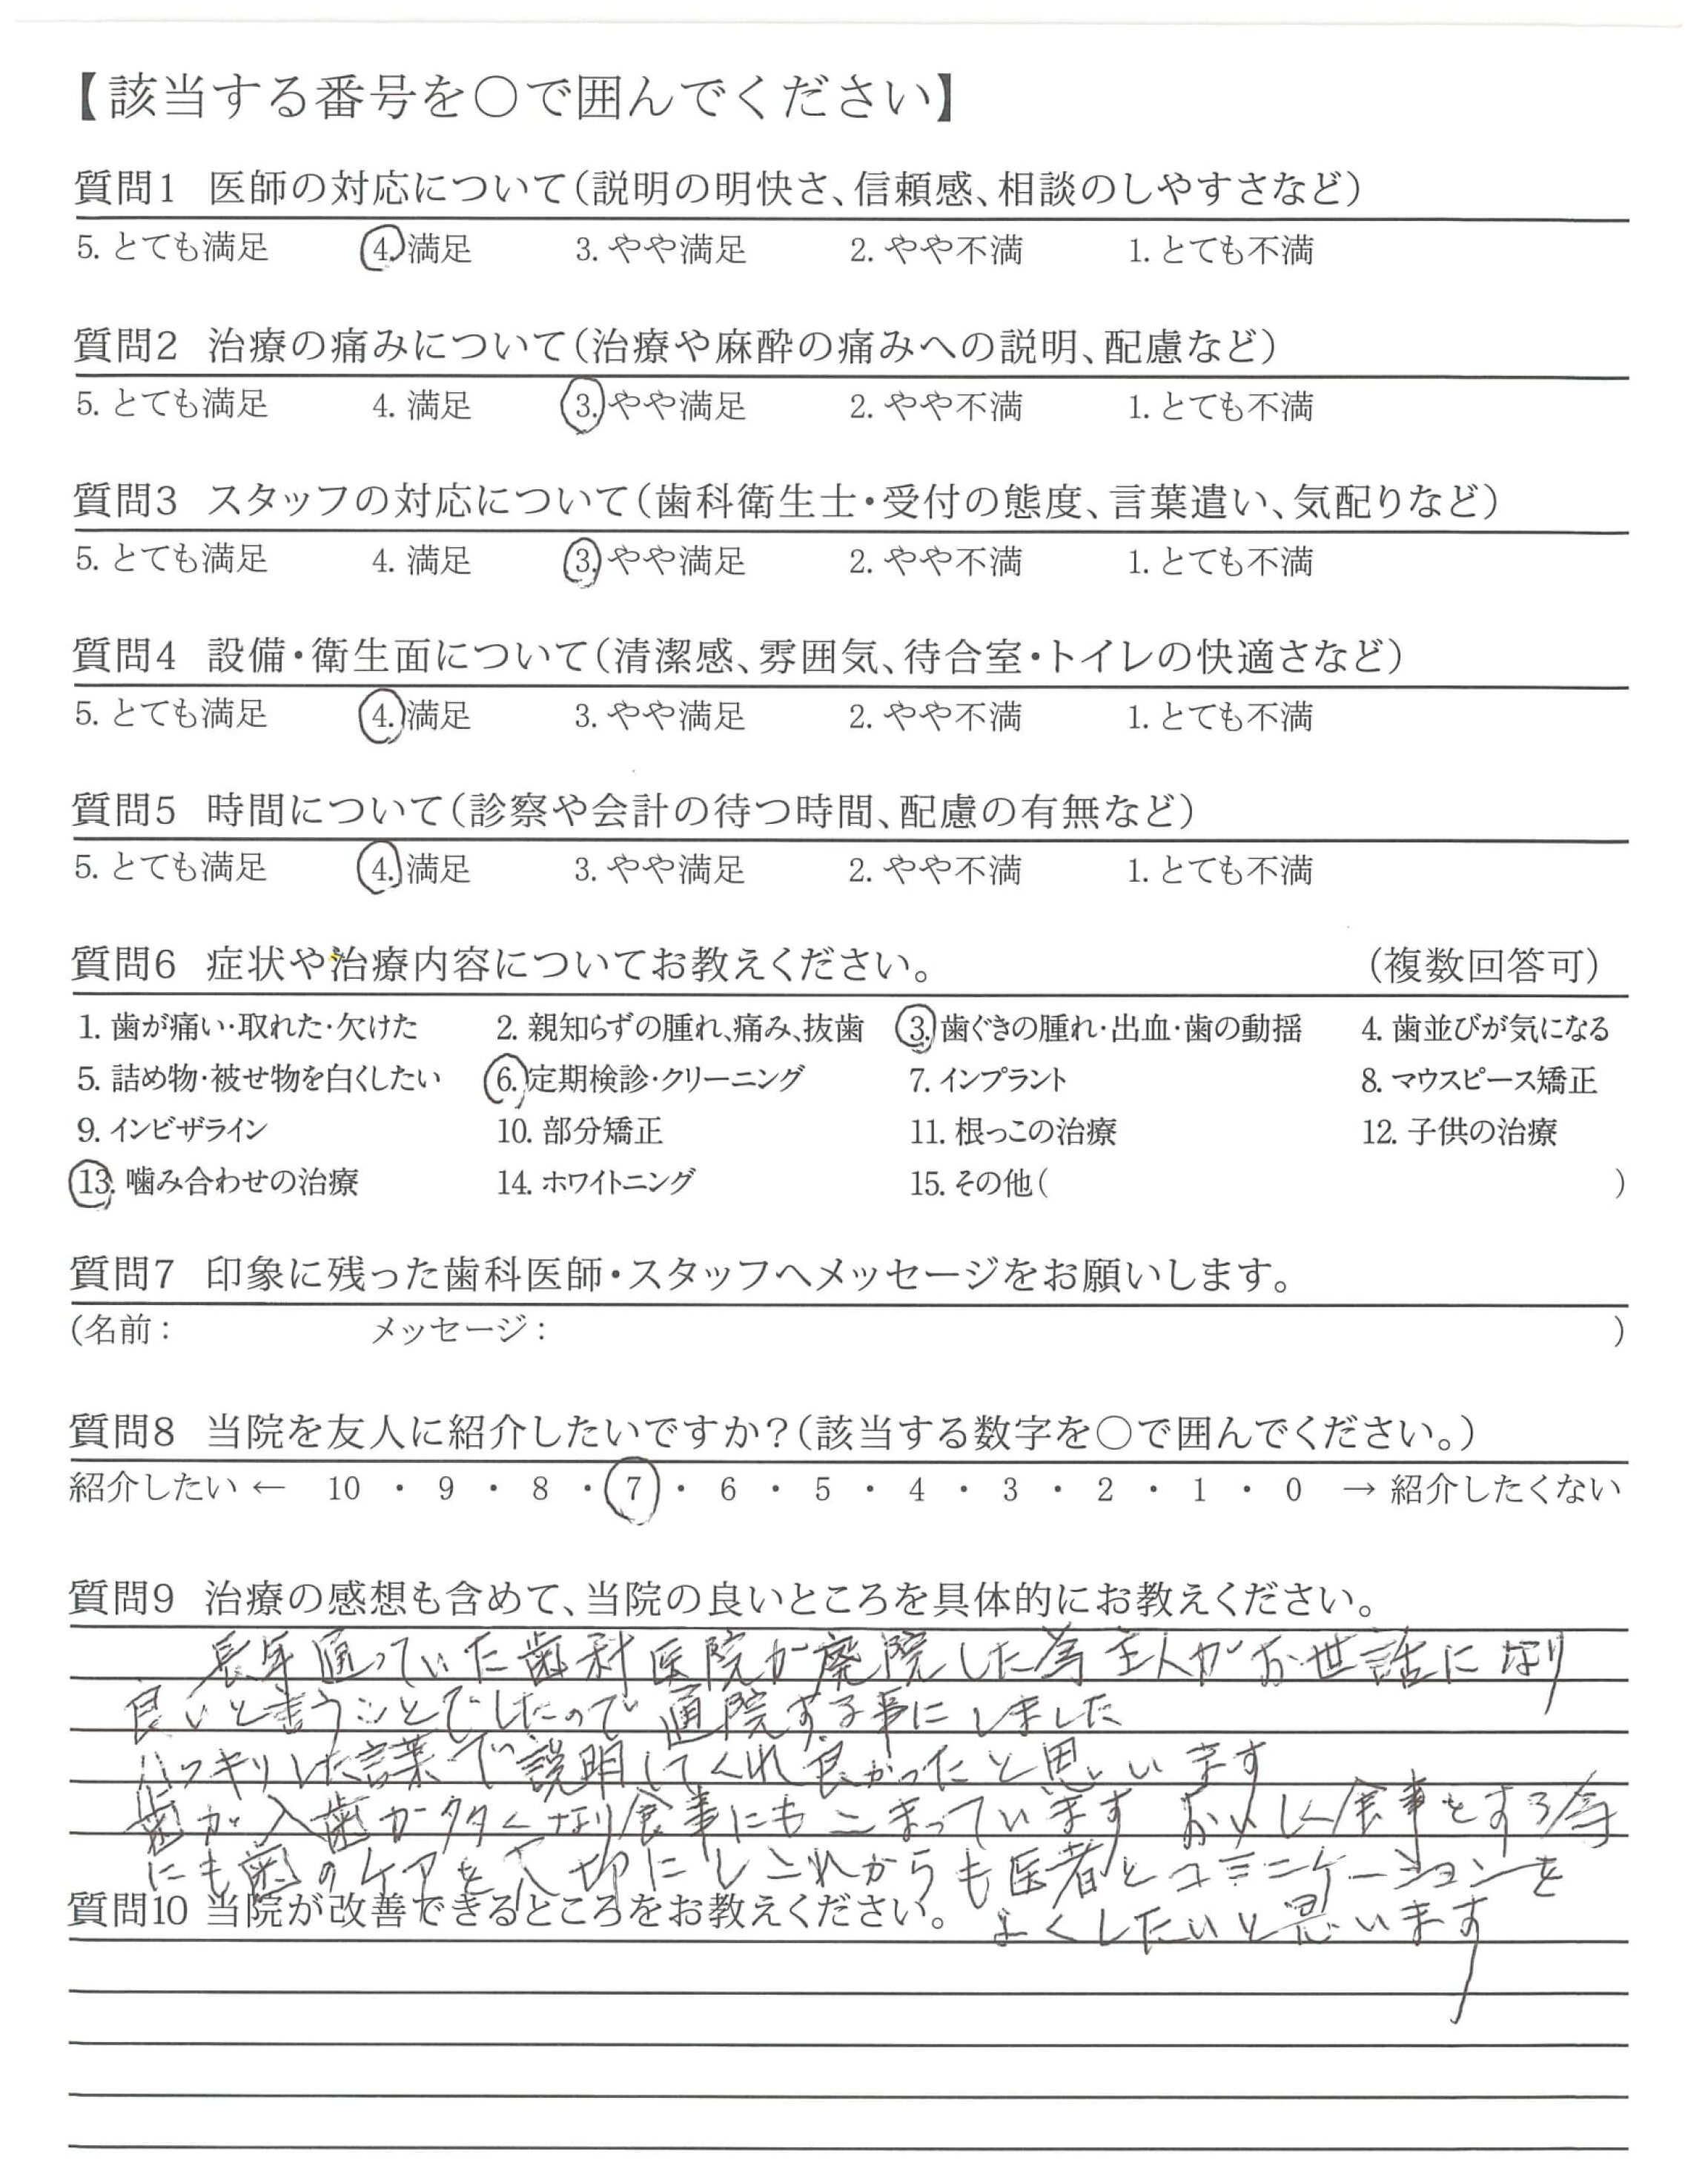 【該当する番号を○で囲んでください】
質問1 医師の対応について(説明の明快さ、信頼感、相談のしやすさなど)
5. とても満足 4. 満足 3. やや満足 2. やや不満 1. とても不満
質問2 治療の痛みについて(治療や麻酔の痛みへの説明、配慮など)
5. とても満足 4. 満足 3. やや満足 2. やや不満 1. とても不満
質問3 スタッフの対応について(歯科衛生士・受付の態度、言葉遣い、気配りなど)
5. とても満足 4. 満足 3. やや満足 2. やや不満 1. とても不満
質問4 設備・衛生面について(清潔感、雰囲気、待合室・トイレの快適さなど)
5. とても満足 4. 満足 3. やや満足 2. やや不満 1. とても不満
質問5 時間について(診察や会計の待つ時間、配慮の有無など)
5. とても満足 4. 満足 3. やや満足 2. やや不満 1. とても不満
質問6 症状や治療内容についてお教えください。 (複数回答可)
1. 歯が痛い・取れた・欠けた 2. 親知らずの腫れ、痛み、抜歯 3. 歯ぐきの腫れ・出血・歯の動揺 4. 歯並びが気になる
5. 詰め物・被せ物を白くしたい 6. 定期検診・クリーニング 7. インプラント 8. マウスピース矯正
9. インビザライン 10. 部分矯正 11. 根っこの治療 12. 子供の治療
13. 噛み合わせの治療 14. ホワイトニング 15. その他( )
質問7 印象に残った歯科医師・スタッフへメッセージをお願いします。
(名前: メッセージ: )
質問8 当院を友人に紹介したいですか?(該当する数字を○で囲んでください。)
紹介したい ← 10 ・ 9 ・ 8 ・ 7 ・ 6 ・ 5 ・ 4 ・ 3 ・ 2 ・ 1 ・ 0 → 紹介したくない
質問9 治療の感想も含めて、当院の良いところを具体的にお教えください。
長年通っていた歯科医院が廃院した為主人がお世話になり
良いと言うことでしたので通院する事にしました
ハッキリした言葉で説明してくれ良かったと思います
歯が入歯が多くなり食事にもこまっています おいしく食事をする為
にも歯のケアを大切にしこれからも医者とコミニケーションを
よくしたいと思います
質問10 当院が改善できるところをお教えください。